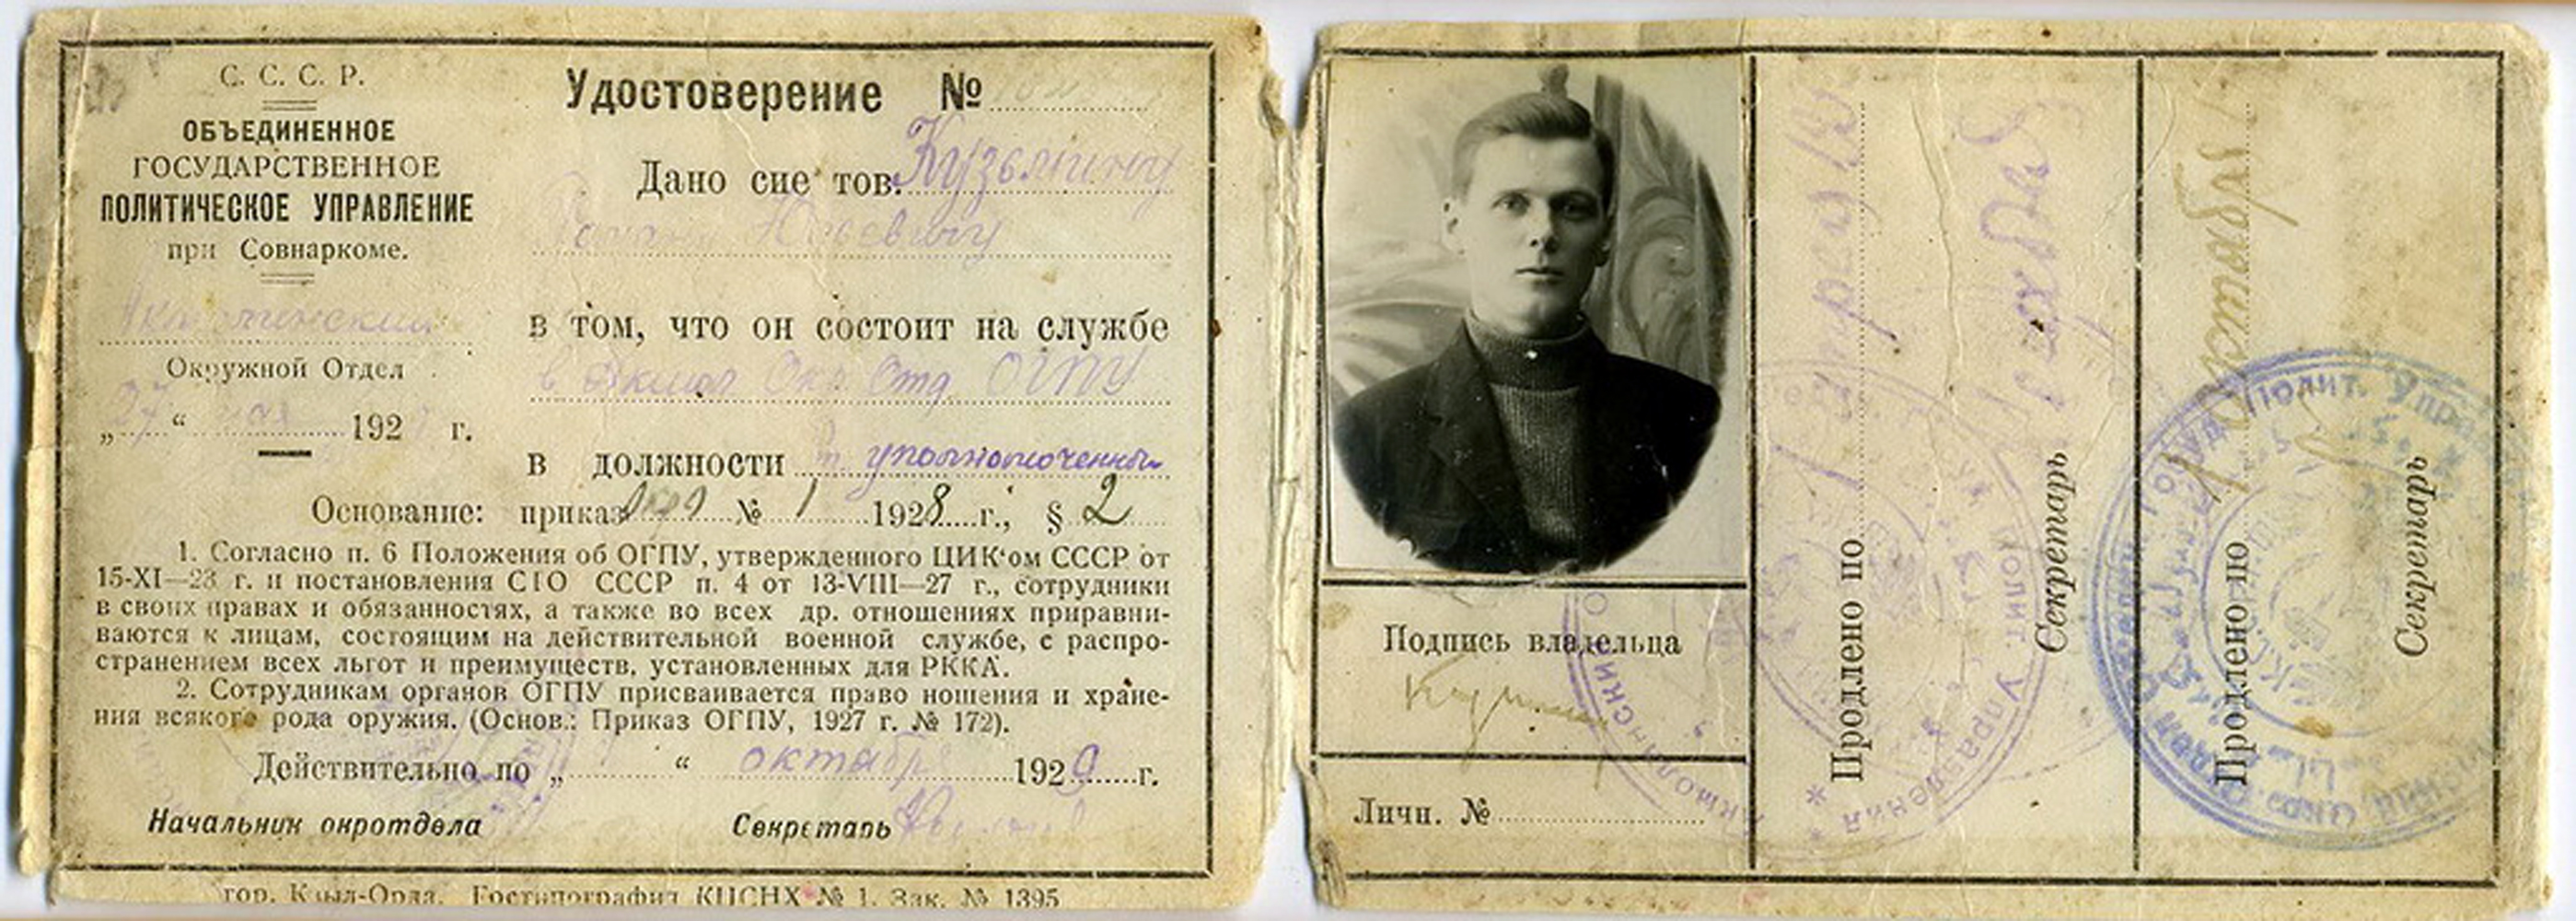 С. С. С. Р.
ОБЪЕДИНЕННОЕ
ГОСУДАРСТВЕННОЕ
ПОЛИТИЧЕСКОЕ УПРАВЛЕНИЕ
при Совнаркоме.
Акмолинский
Окружной Отдел
„27“ мая 192 г.
Удостоверение №
Дано сие тов. Кузьмину
Юрьевичу
в том, что он состоит на службе
в Акмол Окр Отд. ОГПУ
в должности уполномоченный
Основание: приказ № 1 1928 г., § 2
1. Согласно п. 6 Положения об ОГПУ, утвержденного ЦИК‘ом СССР от
15-XI—23 г. и постановления СТО СССР п. 4 от 13-VIII—27 г., сотрудники
в своих правах и обязанностях, а также во всех др. отношениях приравни-
ваются к лицам, состоящим на действительной военной службе, с распро-
странением всех льгот и преимуществ, установленных для РККА.
2. Сотрудникам органов ОГПУ присваивается право ношения и хране-
ния всякого рода оружия. (Основ.: Приказ ОГПУ, 1927 г. № 172).
Действительно по „ “ октября 192 г.
Начальник окротдела Секретарь
гор. Кзыл-Орда. Гостипография КЦСНХ № 1. Зак. № 1395
Подпись владельца
Личн. №
Продлено по
Секретарь
Продлено по
Секретарь